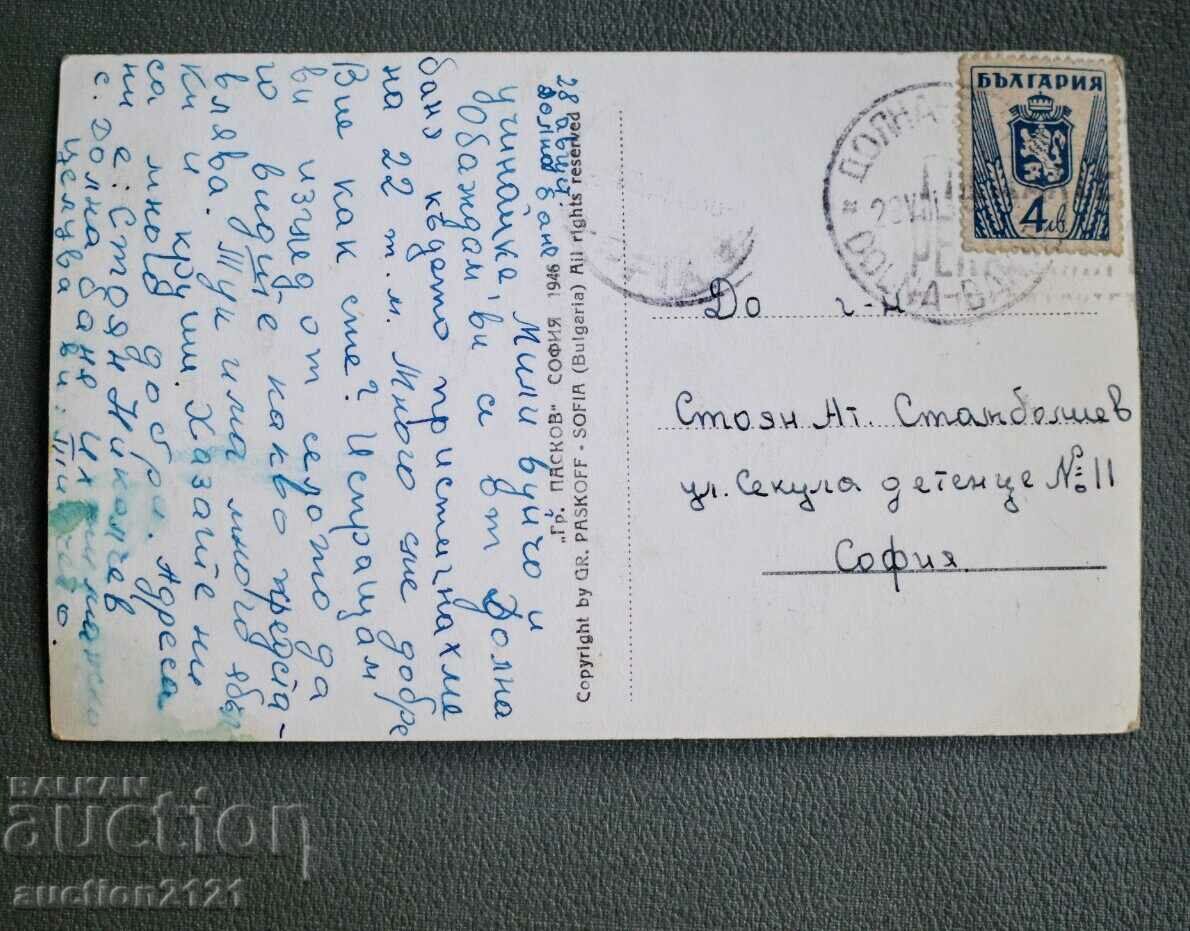 28 август
Долна баня
Мили вуйчо и
учинайке,
Обаждам ви се от Долна
баня където пристигнахме
на 22 т.м. Много сме добре
Вие как сте? Истращам
ви изглед от селото да
го видите какво предста-
влява. Тук има много ябъл
ки и круши. Хазаите ни
са много добри. Адреса
ни е: Стоян Николчев
с. Долна баня
Целува ви:
"Гр. ПАСКОВ" СОФИЯ 1946
Copyright by GR. PASKOFF - SOFIA (Bulgaria) All rights reserved
БЪЛГАРИЯ
4 лв.
ДОЛНА
До г-н
Стоян Ат. Стамболиев
ул. Секула детенце № 11
София
BALKAN
auction
auction2121